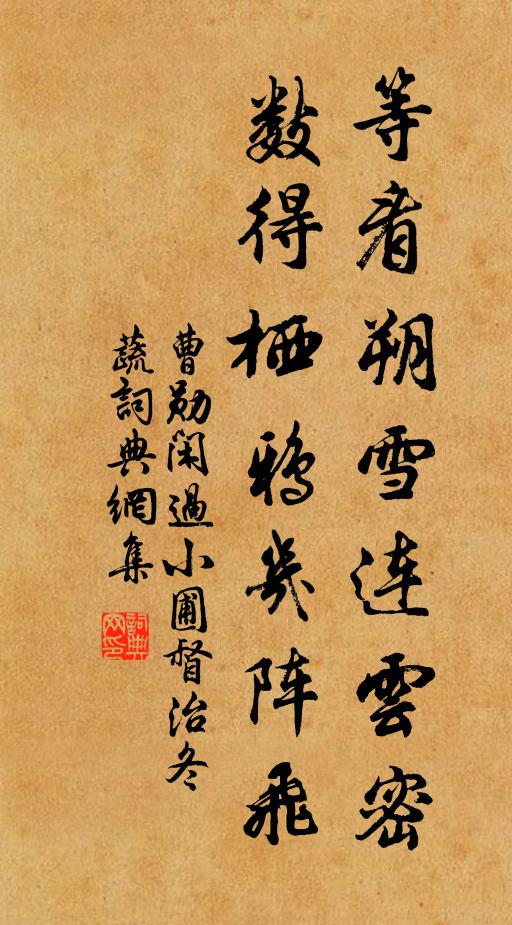 等看朔雪连雲密
数得栖鸦几阵飛
曹勋閑過小圃督治冬
蔬詞典網集
詞典网印